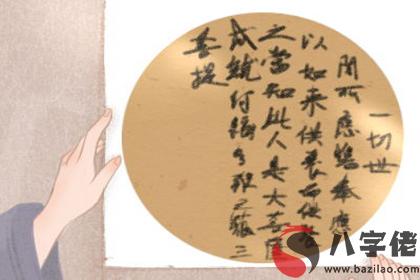 一切世
間所應瞻奉應
以如来供養而供養
之當知此人是大菩薩
成就阿耨多羅三藐三
菩提
八字佬
www.bazilao.com